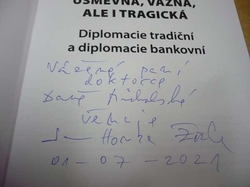 ÚSMĚVNÁ, VÁŽNÁ,
ALE I TRAGICKÁ
Diplomacie tradiční
a diplomacie bankovní
Vážené paní
doktorce
Daně
věnuje
Honza
01-07-2021